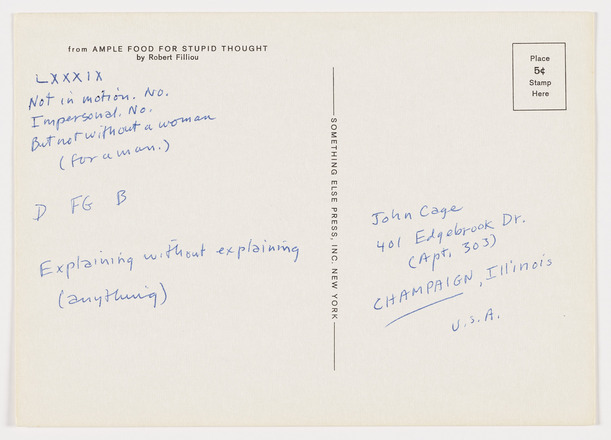 from AMPLE FOOD FOR STUPID THOUGHT
by Robert Filliou
LXXXIX
Not in motion. No.
Impersonal. No.
But not without a woman
(for a man.)
D FG B
Explaining without explaining
(anything)
SOMETHING ELSE PRESS, INC. NEW YORK
Place
5¢
Stamp
Here
John Cage
401 Edgebrook Dr.
(Apt. 303)
CHAMPAIGN, Illinois
U.S.A.